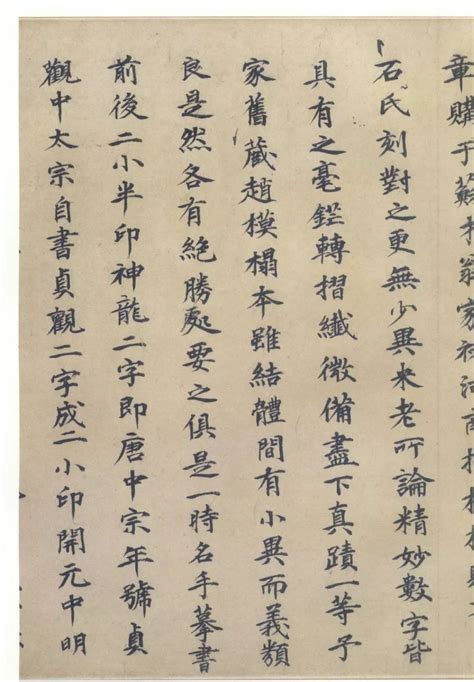 章購于蘇才翁家
石氏刻對之更無少異米老所論精妙數字皆
具有之毫鋩轉摺纖微備盡下真蹟一等予
家舊藏趙模搨本雖結體間有小異而義類
良是然各有絶勝處要之俱是一時名手摹書
前後二小半印神龍二字即唐中宗年號貞
觀中太宗自書貞觀二字成二小印開元中明